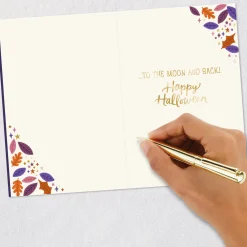 ...TO THE MOON AND BACK!
Happy
Halloween